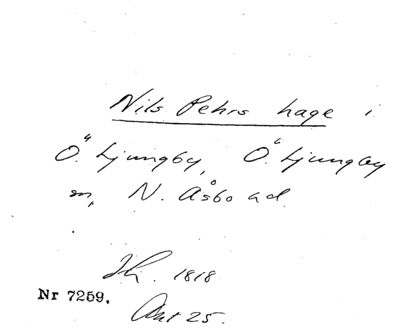 Nils Pehrs hage i
Ö. Ljungby, Ö. Ljungby
sn, N. Åsbo hd.
Th. 1818
Nr 7259.
Akt 25.